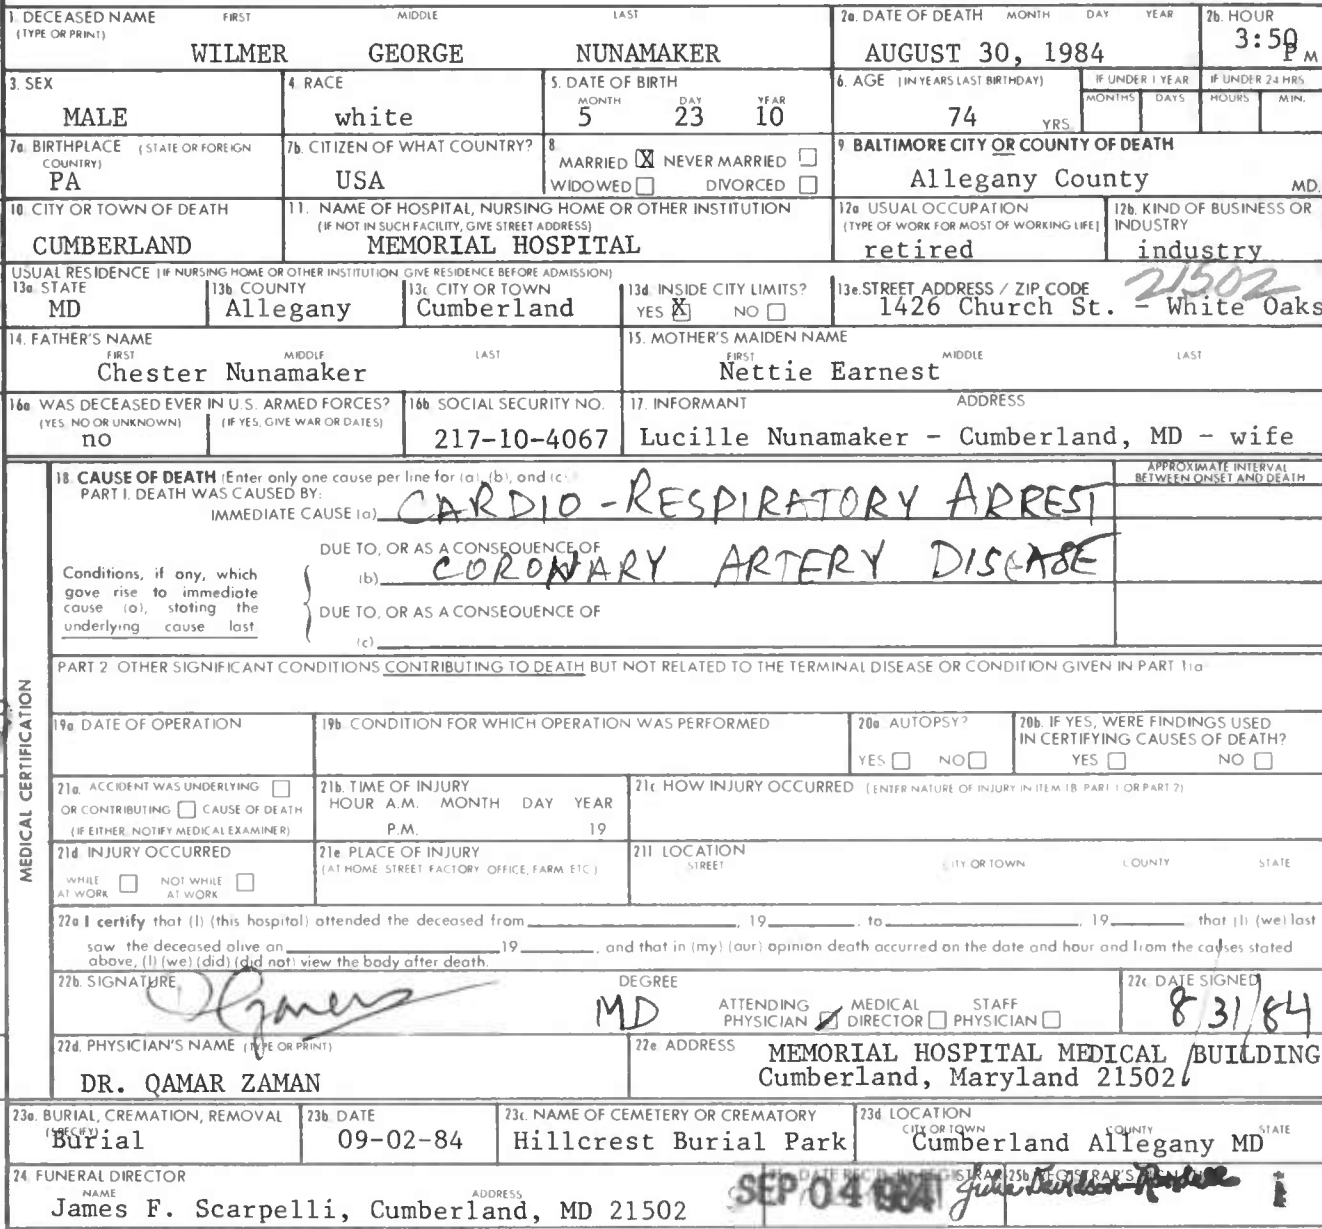 1. DECEASED NAME FIRST MIDDLE LAST
(TYPE OR PRINT)
WILMER GEORGE NUNAMAKER
2a. DATE OF DEATH MONTH DAY YEAR
AUGUST 30, 1984
2b. HOUR
3:50 P M
3. SEX
MALE
4. RACE
white
5. DATE OF BIRTH
MONTH DAY YEAR
5 23 10
6. AGE (IN YEARS LAST BIRTHDAY)
74 YRS.
IF UNDER 1 YEAR
MONTHS DAYS
IF UNDER 24 HRS
HOURS MIN.
7a. BIRTHPLACE (STATE OR FOREIGN
COUNTRY)
PA
7b. CITIZEN OF WHAT COUNTRY?
USA
8.
MARRIED X NEVER MARRIED
WIDOWED DIVORCED
9. BALTIMORE CITY OR COUNTY OF DEATH
Allegany County MD.
10. CITY OR TOWN OF DEATH
CUMBERLAND
11. NAME OF HOSPITAL, NURSING HOME OR OTHER INSTITUTION
(IF NOT IN SUCH FACILITY, GIVE STREET ADDRESS)
MEMORIAL HOSPITAL
12a. USUAL OCCUPATION
(TYPE OF WORK FOR MOST OF WORKING LIFE)
retired
12b. KIND OF BUSINESS OR
INDUSTRY
industry
USUAL RESIDENCE (IF NURSING HOME OR OTHER INSTITUTION GIVE RESIDENCE BEFORE ADMISSION)
13a. STATE
MD
13b. COUNTY
Allegany
13c. CITY OR TOWN
Cumberland
13d. INSIDE CITY LIMITS?
YES X NO
13e. STREET ADDRESS / ZIP CODE
21502
1426 Church St. - White Oaks
14. FATHER'S NAME
FIRST MIDDLE LAST
Chester Nunamaker
15. MOTHER'S MAIDEN NAME
FIRST MIDDLE LAST
Nettie Earnest
16a. WAS DECEASED EVER IN U.S. ARMED FORCES?
(YES, NO OR UNKNOWN) (IF YES, GIVE WAR OR DATES)
no
16b. SOCIAL SECURITY NO.
217-10-4067
17. INFORMANT ADDRESS
Lucille Nunamaker - Cumberland, MD - wife
MEDICAL CERTIFICATION
18. CAUSE OF DEATH (Enter only one cause per line for (a), (b), and (c).)
PART I. DEATH WAS CAUSED BY:
IMMEDIATE CAUSE (a) CARDIO-RESPIRATORY ARREST
APPROXIMATE INTERVAL
BETWEEN ONSET AND DEATH
DUE TO, OR AS A CONSEQUENCE OF
(b) CORONARY ARTERY DISEASE
Conditions, if any, which
gave rise to immediate
cause (a), stating the
underlying cause last
DUE TO, OR AS A CONSEQUENCE OF
(c)
PART 2 OTHER SIGNIFICANT CONDITIONS CONTRIBUTING TO DEATH BUT NOT RELATED TO THE TERMINAL DISEASE OR CONDITION GIVEN IN PART 1(a)
19a. DATE OF OPERATION
19b. CONDITION FOR WHICH OPERATION WAS PERFORMED
20a. AUTOPSY?
YES NO
20b. IF YES, WERE FINDINGS USED
IN CERTIFYING CAUSES OF DEATH?
YES NO
21a. ACCIDENT WAS UNDERLYING
OR CONTRIBUTING CAUSE OF DEATH
(IF EITHER, NOTIFY MEDICAL EXAMINER)
21b. TIME OF INJURY
HOUR A.M. MONTH DAY YEAR
P.M. 19
21c. HOW INJURY OCCURRED (ENTER NATURE OF INJURY IN ITEM 18 PART 1 OR PART 2)
21d. INJURY OCCURRED
WHILE AT WORK NOT WHILE AT WORK
21e. PLACE OF INJURY
(AT HOME STREET FACTORY OFFICE, FARM ETC.)
21f. LOCATION
STREET CITY OR TOWN COUNTY STATE
22a. I certify that (I) (this hospital) attended the deceased from 19 to 19 that (I) (we) last
saw the deceased alive on 19 , and that in (my) (our) opinion death occurred on the date and hour and from the causes stated
above, (I) (we) (did) (did not) view the body after death.
22b. SIGNATURE
DEGREE
MD
ATTENDING PHYSICIAN MEDICAL DIRECTOR STAFF PHYSICIAN
22c. DATE SIGNED
8/31/84
22d. PHYSICIAN'S NAME (TYPE OR PRINT)
DR. QAMAR ZAMAN
22e. ADDRESS
MEMORIAL HOSPITAL MEDICAL BUILDING
Cumberland, Maryland 21502
23a. BURIAL, CREMATION, REMOVAL
(SPECIFY)
Burial
23b. DATE
09-02-84
23c. NAME OF CEMETERY OR CREMATORY
Hillcrest Burial Park
23d. LOCATION
CITY OR TOWN COUNTY STATE
Cumberland Allegany MD
24. FUNERAL DIRECTOR
NAME ADDRESS
James F. Scarpelli, Cumberland, MD 21502
SEP 04 1984
25b. REGISTRAR'S